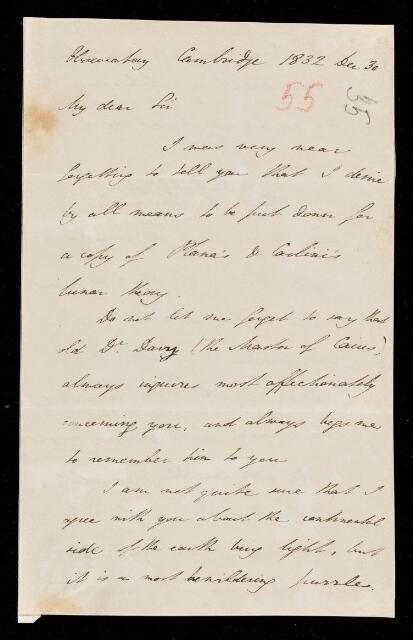 Observatory Cambridge 1832 Dec 30
55
55
My dear Sir
I was very near
forgetting to tell you that I desire
by all means to be put down for
a copy of Plana's & Carlini's
lunar theory.
Do not let me forget to say that
old Dr. Davy (the Master of Caius)
always inquires most affectionately
concerning you, and always begs me
to remember him to you
I am not quite sure that I
agree with you about the continental
side of the earth being light, but
it is a most bewildering puzzle.